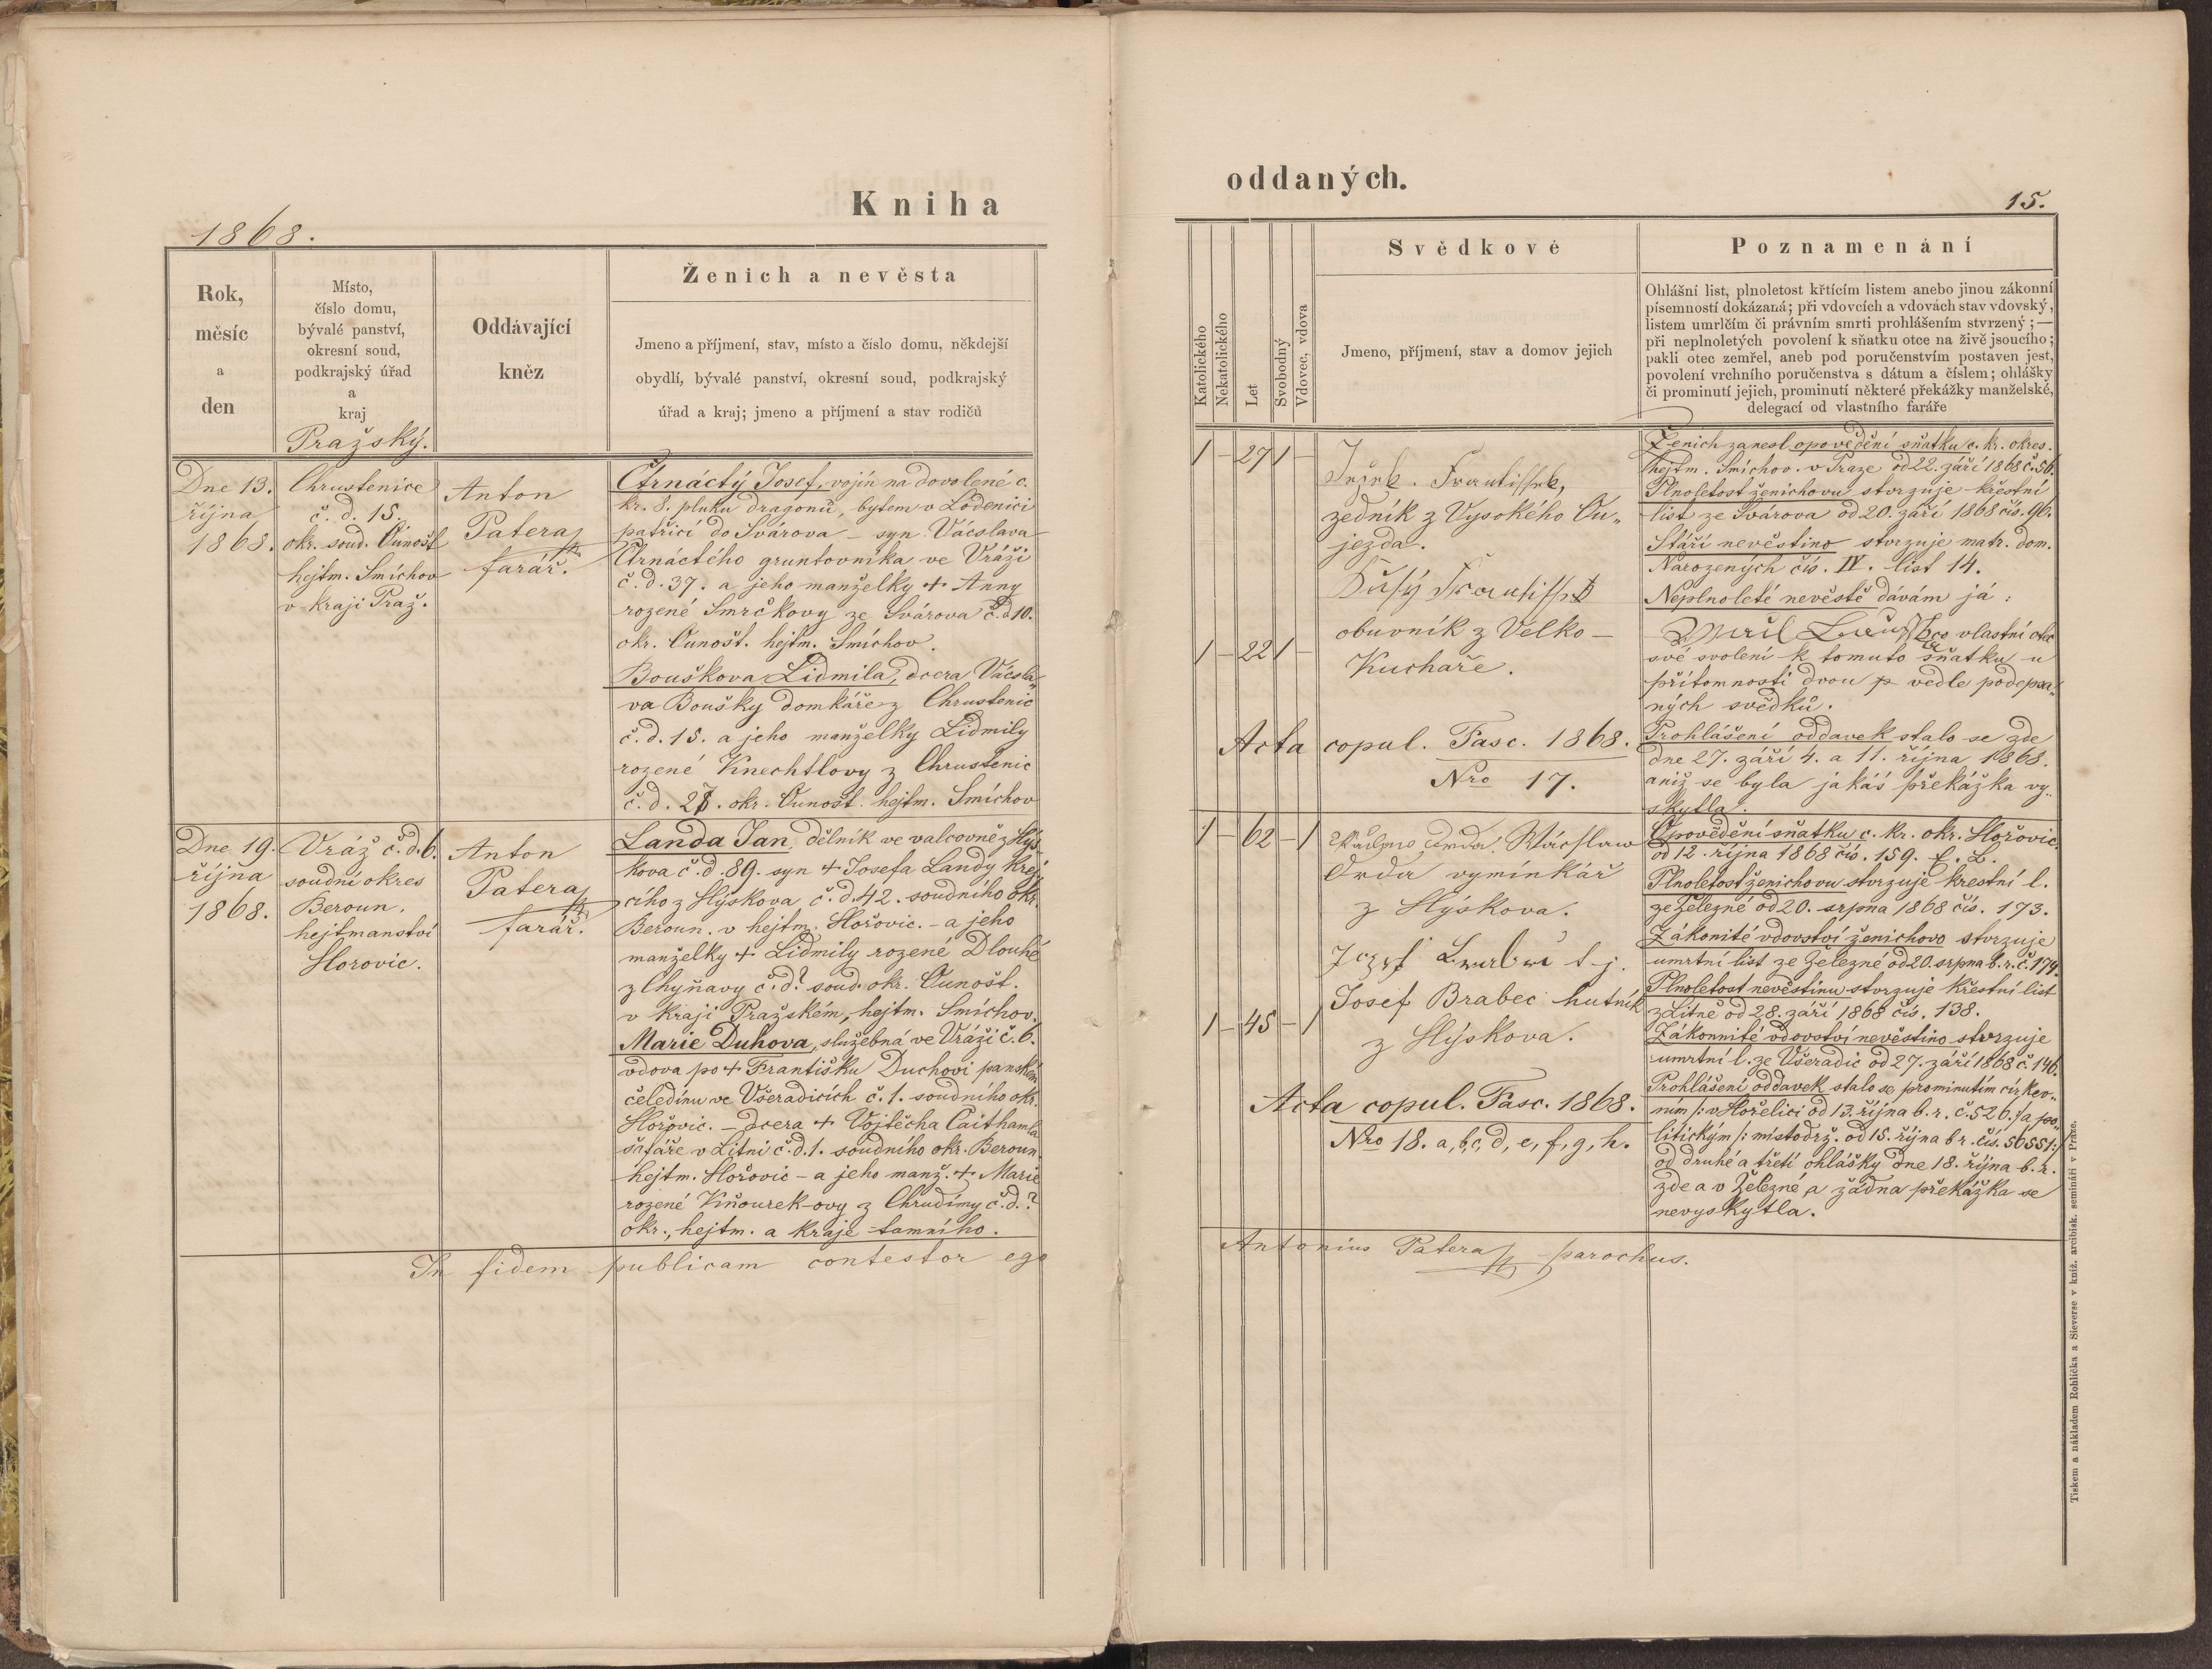 Kniha
1868.
Rok,
měsíc
a
den
Místo,
číslo domu,
bývalé panství,
okresní soud,
podkrajský úřad
a
kraj
Pražský.
Oddávající
kněz
Ženich a nevěsta
Jmeno a příjmení, stav, místo a číslo domu, někdejší
obydlí, bývalé panství, okresní soud, podkrajský
úřad a kraj; jmeno a příjmení a stav rodičů
Dne 13.
října
1868.
Chrustenice
č. d. 15.
okr. soud. Ounošť
hejtm. Smíchov
v kraji Praž.
Anton
Patera
farář.
Čtrnáctý Josef, vojín na dovolené c.
kr. 8. pluku dragonů, bytem v Lodenici
patřící do Svárova – syn Vácslava
Čtrnáctého gruntovníka ve Vráži
č. d. 37. a jeho manželky + Anny
rozené Smrčkovy ze Svárova č. d 10.
okr. Ounošt. hejtm. Smíchov.
Bouškova Lidmila, dcera Vácsla„
va Boušky domkáře z Chrustenic
č. d. 15. a jeho manželky Lidmily
rozené Knechtlovy z Chrustenic
okr. Ounošt. hejtm. Smíchov
Dne 19.
října
1868.
Vráž č. d. 6.
soudní okres
Beroun.
hejtmanství
Horovic.
Anton
Patera
farář.
Landa Jan, dělník ve valcovně z Hýs„
kova č. d. 89. syn + Josefa Landy krej„
cího z Hýskova č. d. 42. soudního okr.
Beroun. v hejtm. Hořovic. – a jeho
manželky + Lidmily rozené Dlouhé
z Chyňavy č. d.? soud. okr. Ounošt.
v kraji Pražském, hejtm. Smíchov.
Marie Duhova, služebná ve Vráži č. 6.
vdova po + Františku Duchovi panském
čeledínu ve Všeradicích č. 1. soudního okr.
Hořovic. – dcera + Vojtěcha Caithamla
šafáře v Litni č. d. 1. soudního okr. Beroun.
hejtm. Hořovic – a jeho manž. + Marie
rozené Kňourek-ovy z Chrudímy č. d.?
okr., hejtm. a kraje tamního.
In fidem publicam contestor ego
oddaných.
15.
Katolického
Nekatolického
Let
Svobodný
Vdovec, vdova
Svědkové
Jmeno, příjmení, stav a domov jejich
Poznamenání
Ohlášní list, plnoletost křtícím listem anebo jinou zákonní
písemností dokázaná; při vdovcích a vdovách stav vdovský,
listem umrlčím či právním smrti prohlášením stvrzený; —
při neplnoletých povolení k sňatku otce na živě jsoucího;
pakli otec zemřel, aneb pod poručenstvím postaven jest,
povolení vrchního poručenstva s dátum a číslem; ohlášky
či prominutí jejich, prominutí některé překážky manželské,
delegací od vlastního faráře
1 – 27 1 –
zedník z Vysokého Ou„
jezda.
obuvník z Velko –
Kuchaře.
1 – 22 1 –
Acta copul. Fasc. 1868.
Nro 17.
Ženich zanesl opovědění sňatku c. kr. okres.
hejtm. Smíchov. v Praze od 22. září 1868 č. 56.
Plnoletost ženichovu stvrzuje křestní
list ze Svárova od 20. září 1868 čís. 96.
Stáří nevěstino stvrzuje matr. dom.
Narozených čís. IV. list 14.
Neplnoleté nevěstě dávám já:
co vlastní otec
své svolení k tomuto sňatku u
přítomnosti dvou p vedle podepsa„
ných svědků.
Prohlášení oddavek stalo se zde
dne 27. září 4. a 11. října 1868.
aniž se byla jakás překážka vy„
skytla.
1 – 62 – 1
Wácslaw
Ourda vymínkář
z Hýskova.
Josef Brabec hutník
z Hýskova.
1 – 45 – 1
Acta copul. Fasc. 1868.
Nro 18. a, b, c, d, e, f, g, h.
Opovědění sňatku c. kr. okr. Hořovic.
od 12. října 1868 čís. 159.
Plnoletost ženichovu stvrzuje krestní l.
ze Železné od 20. srpna 1868 čís. 173.
Zákonité vdovství ženichovo stvrzuje
umrtní list ze Železné od 20. srpna b. r. č. 174.
Plnoletost nevěstinu stvrzuje křestní list
z Litně od 28. září 1868 čís. 138.
Zákonnité vdovství nevěstino stvrzuje
umrtní l. ze Všeradic od 27. září 1868 č. 146.
Prohlášení oddavek stalo se prominutím církev„
ním /: v Hořelici od 13. října b. r. č. 526. / a po„
litickým /: místodrž. od 15. října b r. čís. 56551 :/
od druhé a třetí ohlášky dne 18. října b. r.
zde a v Železné a žádna překážka se
nevyskytla.
Antonius Patera parochus.
Tiskem a nákladem Rohlíčka a Sieverse v kníž. arcibisk. semináři v Praze.